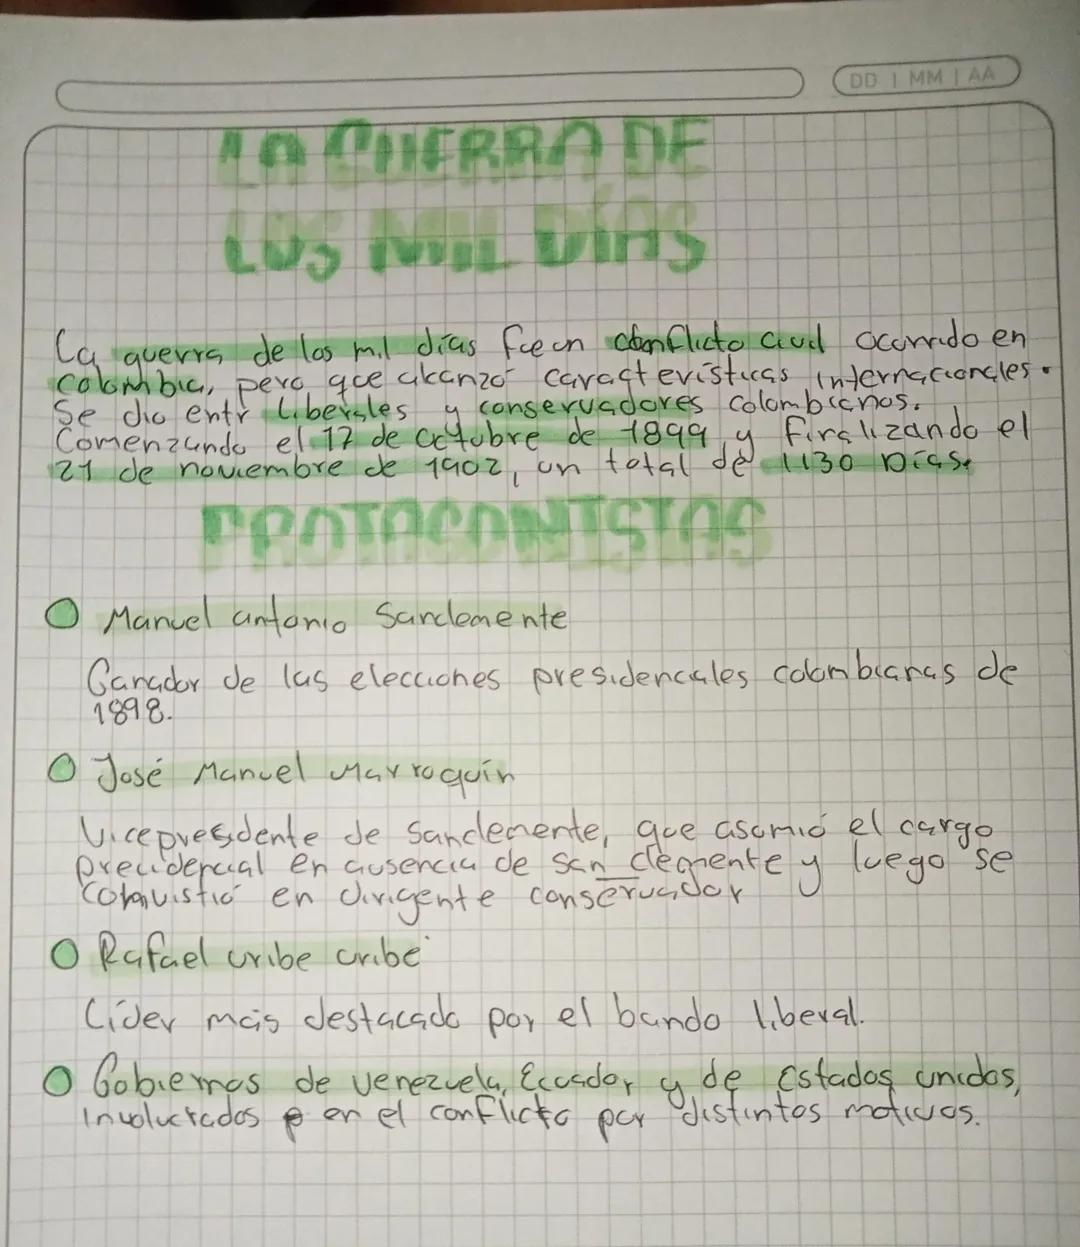 DD | MM | AA
LA GUERRA DE
LOS MIL DÍAS
La guerra de los mil días fue un conflicto civil ocurrido en
Colombia, pero que alcanzó características internacionales.
Se dio entr liberales y conservadores colombianos.
Comenzando el 17 de octubre de 1899 y finalizando el
21 de noviembre de 1902, un total de 1130 Días.
PROTAGONISTAS
Manuel antonio Sanclemente
Ganador de las elecciones presidenciales colombianas de
1898.
José Manuel Marroquín
Vicepresidente de Sanclemente, que asumió el cargo
precidencial en ausencia de San clemente y luego se
en dirigente conservador
Rafael uribe uribe
Líder más destacado por el bando liberal.
Gobiernos de venezuela, Ecuador y de Estados unidos,
Involucrados en el conflicto por distintos motivos.